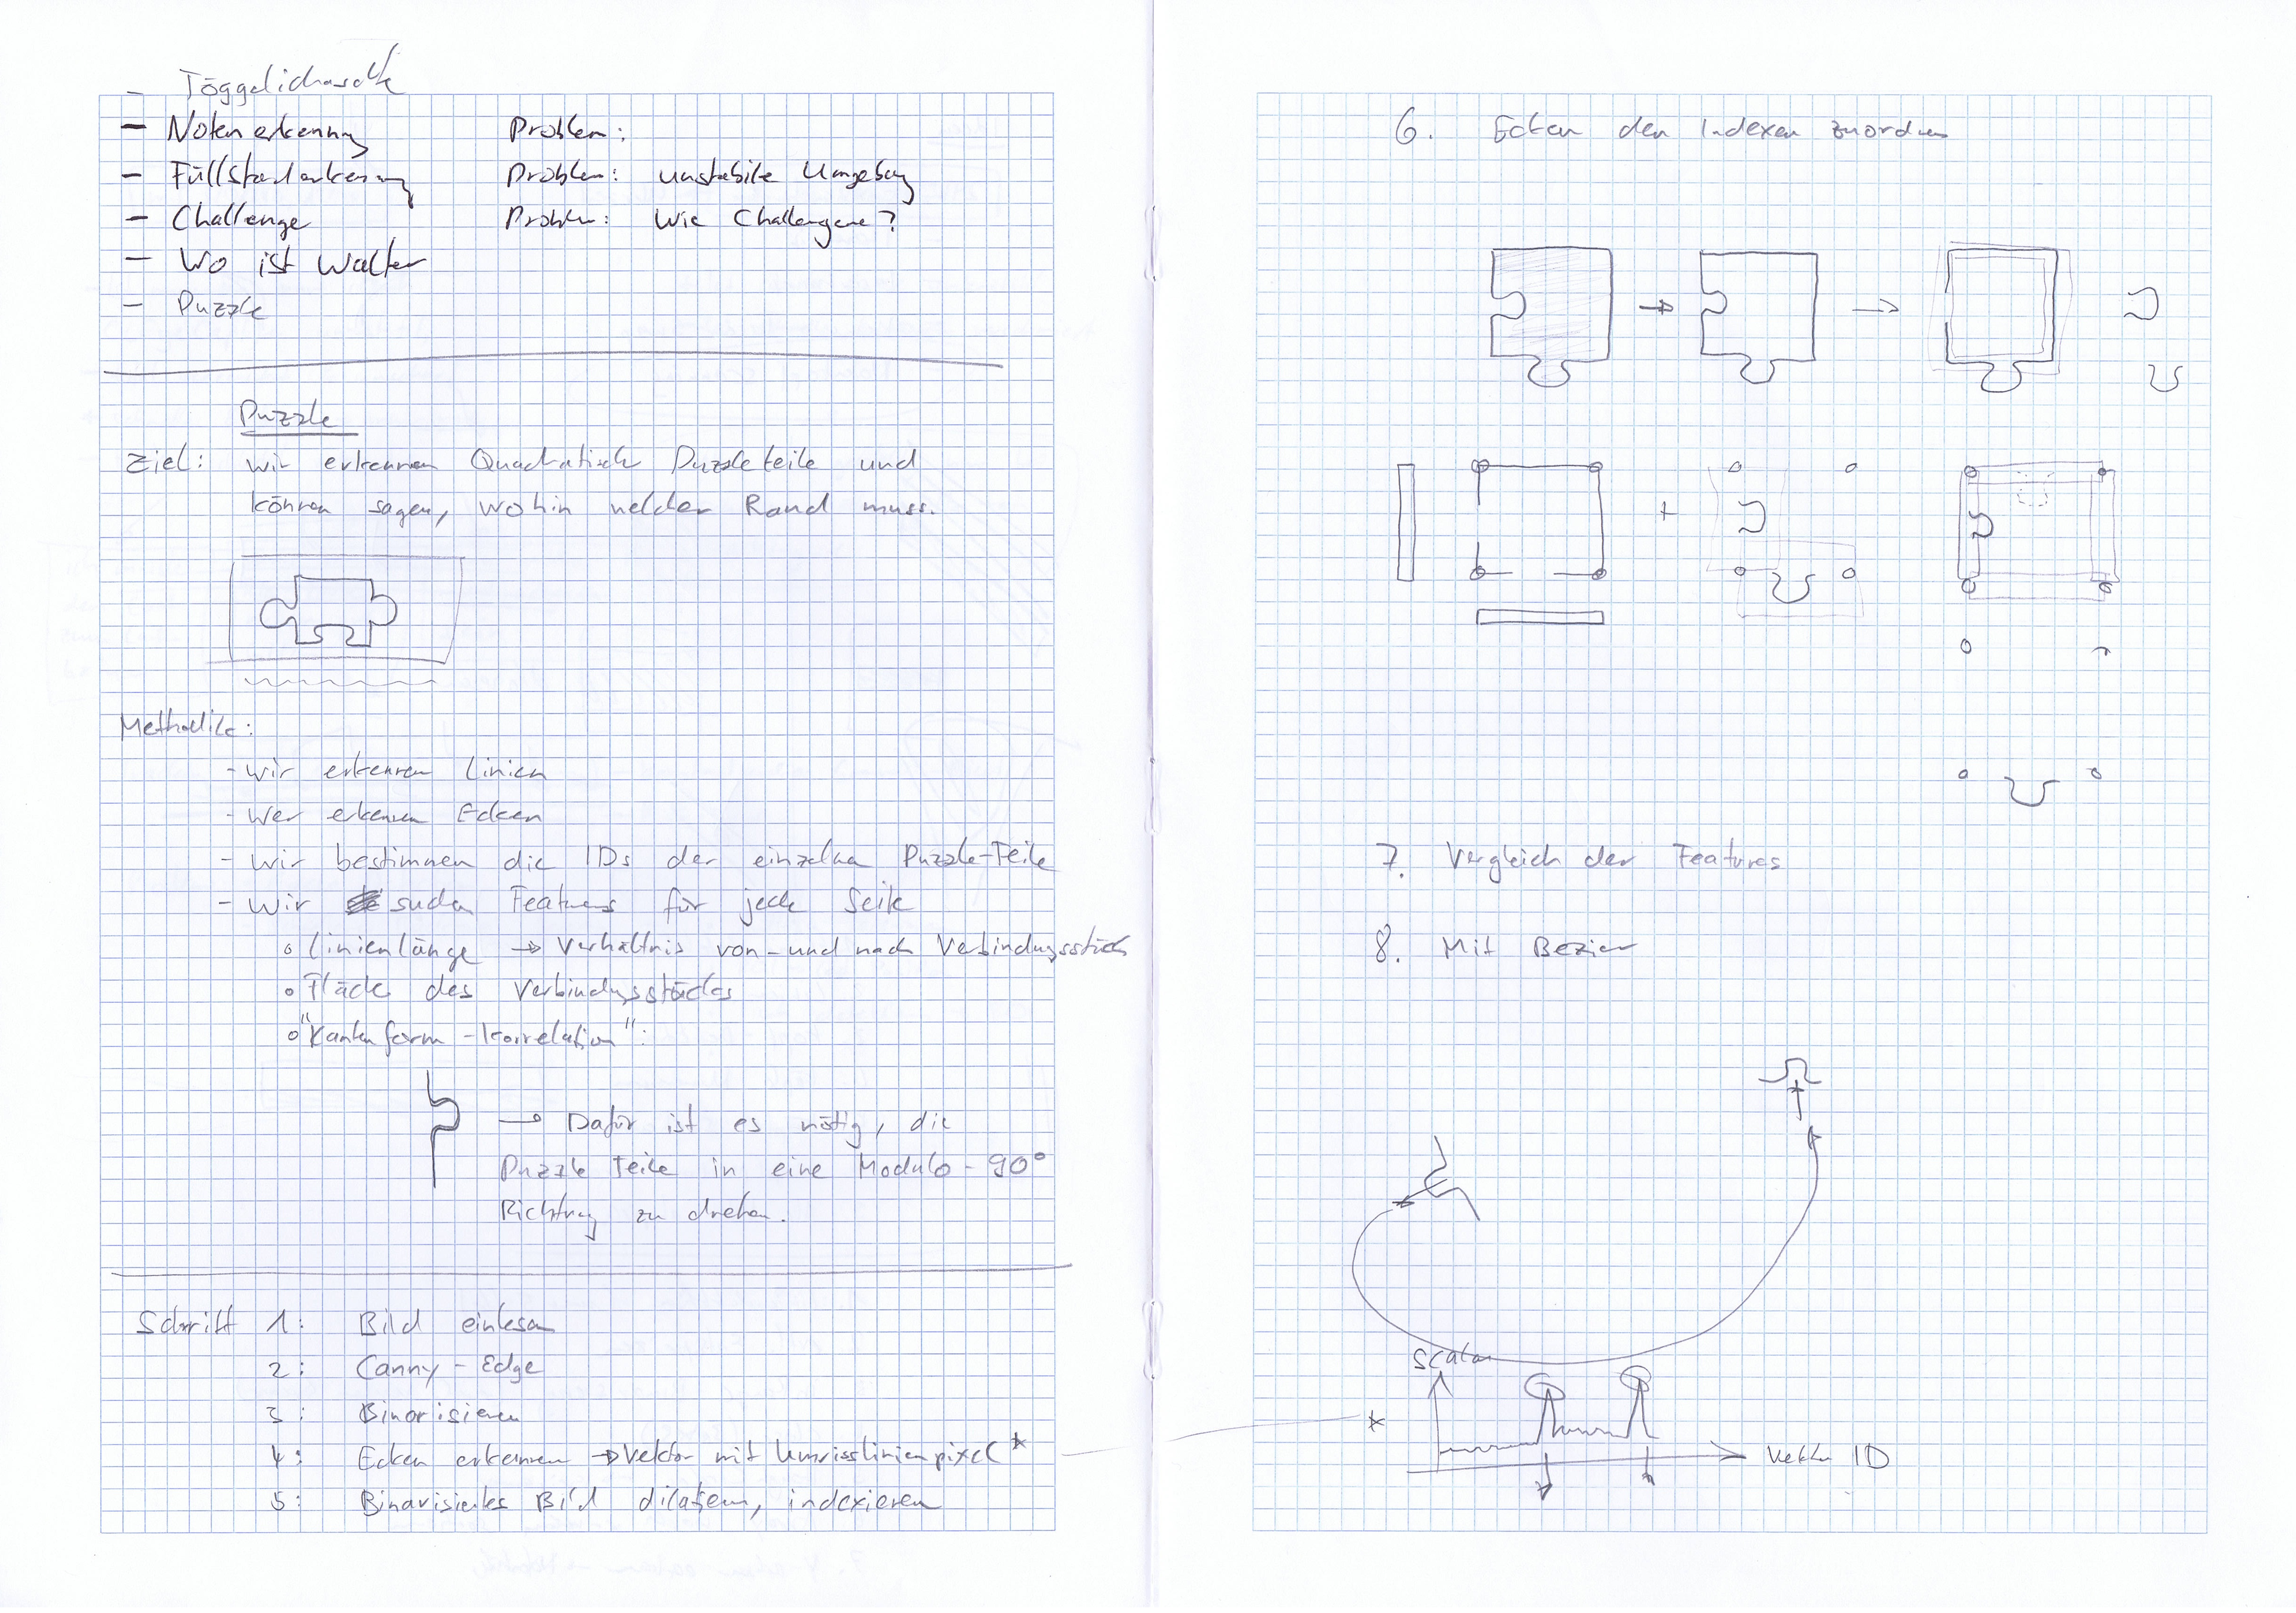 - Töggelichaschte
- Notenerkennung Problem:
- Füllstanderkennung Problem: unstabile Umgebung
- Challenge Problem: Wie Challengene?
- Wo ist Walter
- Puzzle
Puzzle
Ziel: wir erkennen Quadratische Puzzleteile und
können sagen, wohin welcher Rand muss.
Methodik:
- wir erkennen Linien
- wer erkennen Ecken
- wir bestimmen die IDs der einzelnen Puzzle-Teile
- wir suchen Features für jede Seite
o Linienlänge → Verhältnis von- und nach Verbindungsstück
o Fläche des Verbindungsstückes
o "Kantenform-Korrelation":
→ Dafür ist es nötig, die
Puzzle Teile in eine Modulo-90°
Richtung zu drehen.
Schritt 1: Bild einlesen
2: Canny-Edge
3: Binarisieren
4: Ecken erkennen → Vektor mit Umrisslinienpixel *
5: Binarisiertes Bild dilatieren, indexieren
6. Ecken den Indexen zuordnen
+
7. Vergleich der Features
8. Mit Bezier
Scalar
*
Vektor ID